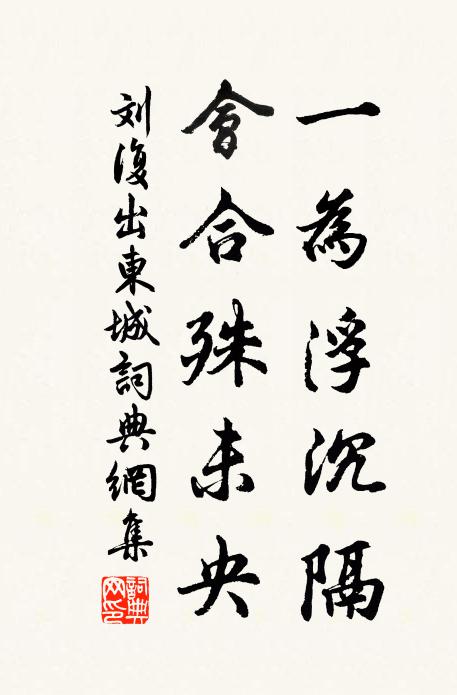 一為浮沉隔
會合殊未央
刘復出東城詞典網集
詞典網印